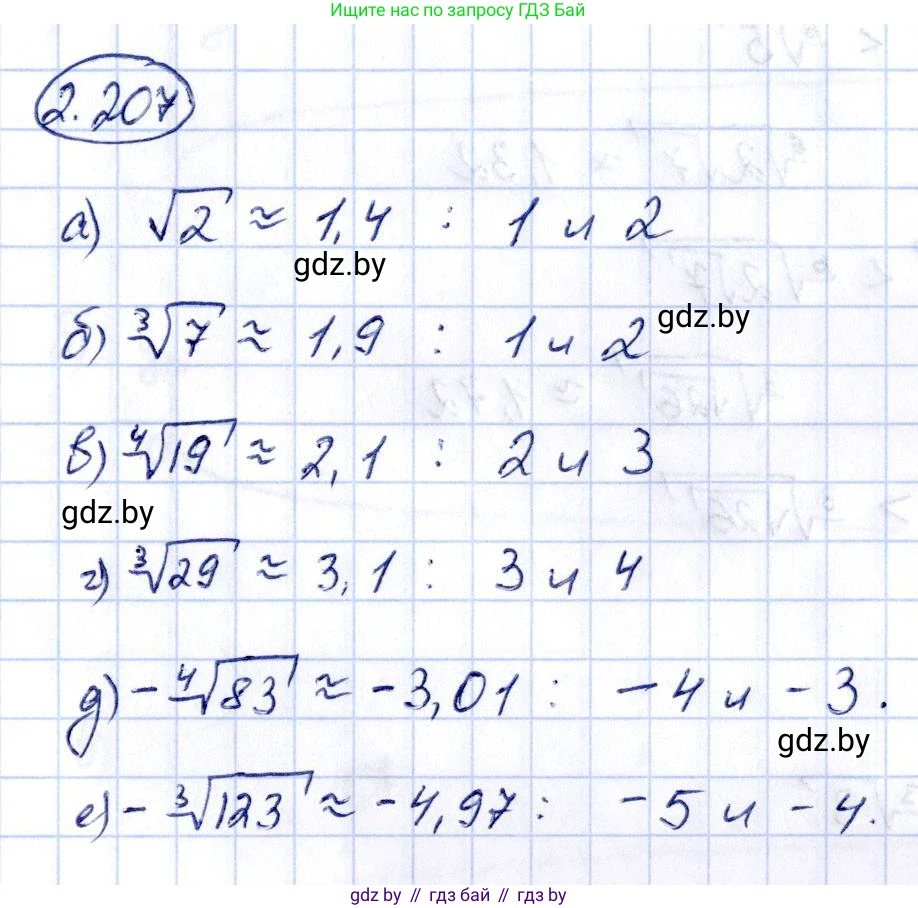 Ищите нас по запросу ГДЗ Бай
2.207
а) √2 ≈ 1,4 : 1 и 2
gdz.by
б) ∛7 ≈ 1,9 : 1 и 2
gdz.by
в) ∜19 ≈ 2,1 : 2 и 3
gdz.by
г) ∛29 ≈ 3,1 : 3 и 4
д) -∜83 ≈ -3,01 : -4 и -3.
gdz.by
е) -∛123 ≈ -4,97 : -5 и -4.
gdz.by // гдз бай // гдз by